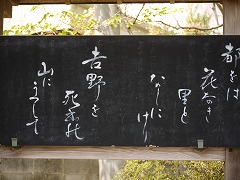 都をは
花なき
里と
なしに
けり
吉野を
死出の
山にうつして